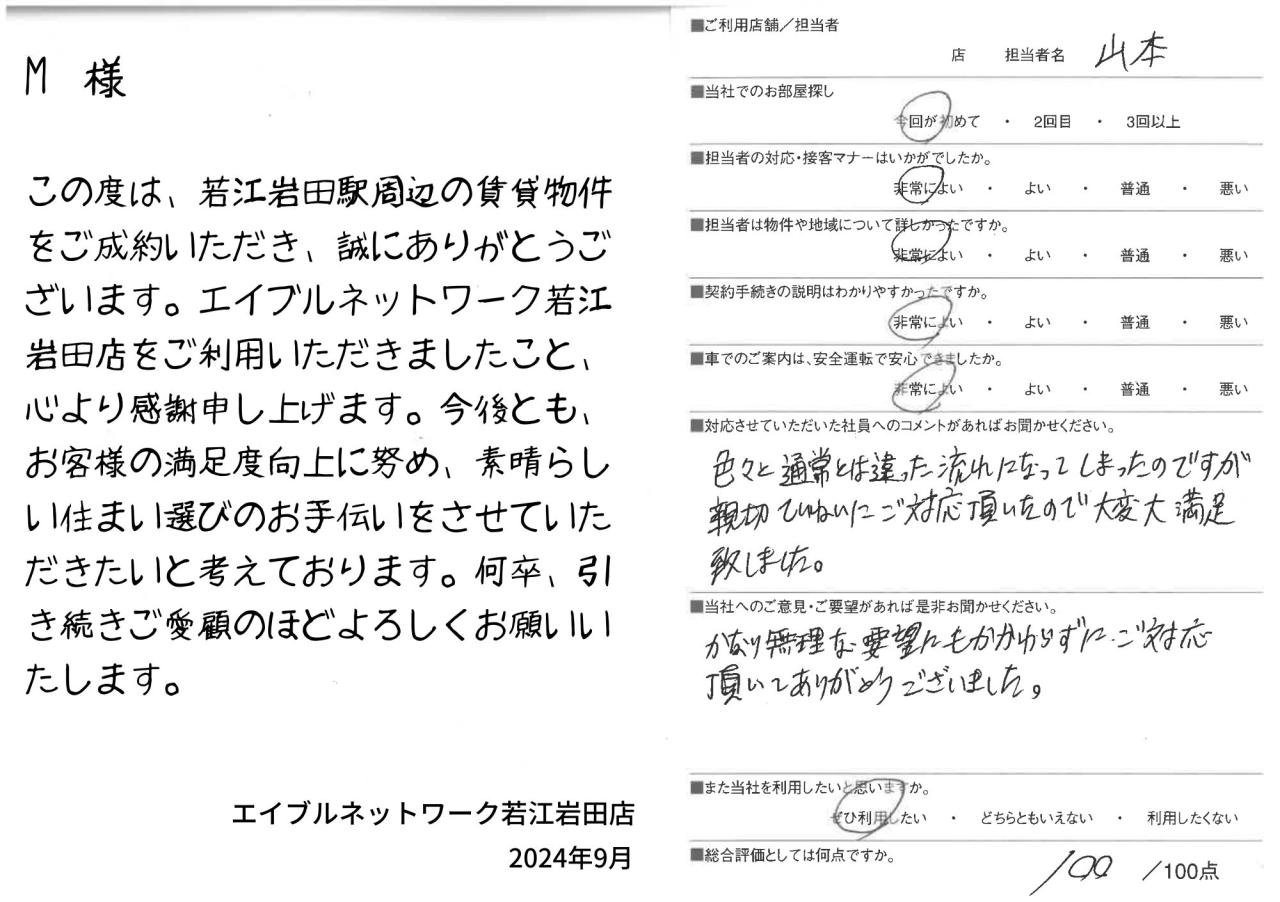 M 様
この度は、若江岩田駅周辺の賃貸物件
をご成約いただき、誠にありがとうご
ざいます。エイブルネットワーク若江
岩田店をご利用いただきましたこと、
心より感謝申し上げます。今後とも、
お客様の満足度向上に努め、素晴らし
い住まい選びのお手伝いをさせていた
だきたいと考えております。何卒、引
き続きご愛顧のほどよろしくお願いい
たします。
エイブルネットワーク若江岩田店
2024年9月
■ご利用店舗／担当者
店 担当者名 山本
■当社でのお部屋探し
今回が初めて ・ 2回目 ・ 3回以上
■担当者の対応・接客マナーはいかがでしたか。
非常によい ・ よい ・ 普通 ・ 悪い
■担当者は物件や地域について詳しかったですか。
非常によい ・ よい ・ 普通 ・ 悪い
■契約手続きの説明はわかりやすかったですか。
非常によい ・ よい ・ 普通 ・ 悪い
■車でのご案内は、安全運転で安心できましたか。
非常によい ・ よい ・ 普通 ・ 悪い
■対応させていただいた社員へのコメントがあればお聞かせください。
色々と通常とは違った流れになってしまったのですが
親切ていねいにご対応頂いたので大変大満足
致しました。
■当社へのご意見・ご要望があれば是非お聞かせください。
かなり無理な要望にもかかわらずにご対応
頂いてありがとうございました。
■また当社を利用したいと思いますか。
ぜひ利用したい ・ どちらともいえない ・ 利用したくない
■総合評価としては何点ですか。
100 /100点